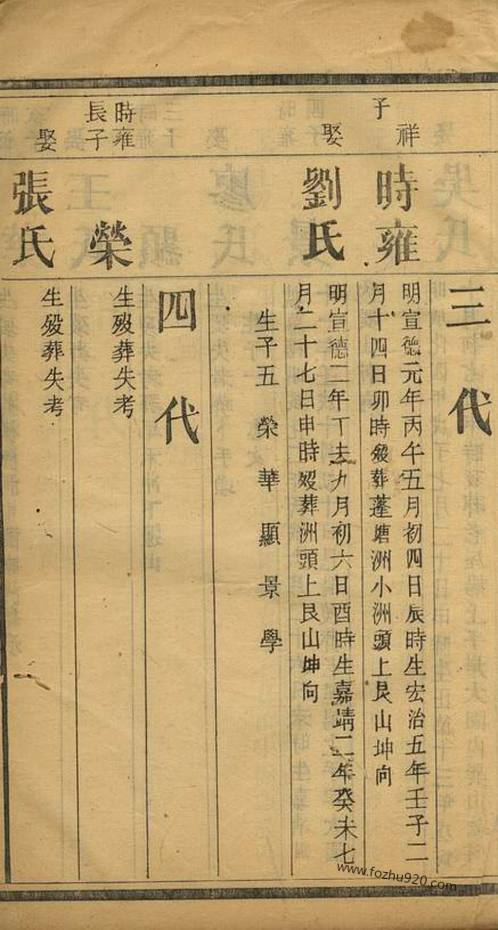 三代
祥子
時雍
明宣德元年丙午五月初四日辰時生宏治五年壬子二
月十四日卯時殁葬蓬塘洲小洲頭上艮山坤向
娶
劉氏
明宣德二年丁未九月初六日酉時生嘉靖二年癸未七
月二十七日申時殁葬洲頭上艮山坤向
生子五 榮 華 顯 景 學
四代
時雍
長子
榮
生殁葬失考
娶
張氏
生殁葬失考
www.fozhu920.com